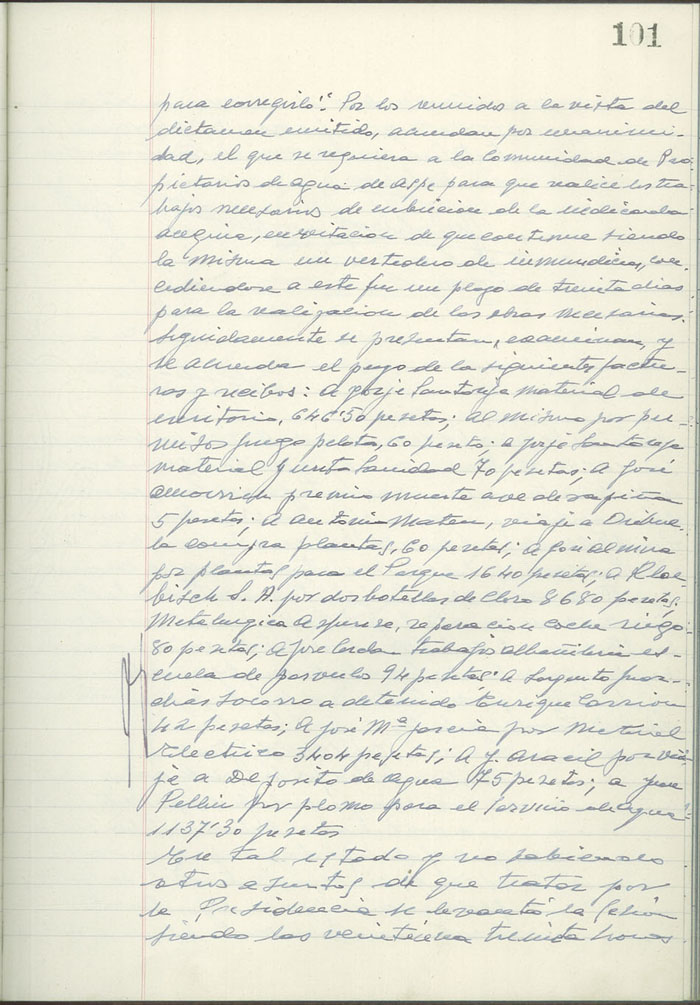 101
para corregirlo". Por los reunidos a la vista del
dictamen emitido, acuerdan por unanimi-
dad, el que se requiera a la Comunidad de Pro-
pietarios de agua de Aspe para que realice los tra-
bajos necesarios de cubricion de la indicada
acequia, en evitacion de que continue siendo
la misma un vertedero de inmundicia, con-
cediendose a este fin un plazo de treinta dias
para la realizacion de las obras necesarias.
Seguidamente se presentan, examinan, y
se acuerda el pago de la siguientes factu-
ras y recibos: A Jorje Santonja material de
escritorio, 646'50 pesetas; al mismo por
juego pelota, 60 pesetas; a Jorje Santonja
material Junta Sanidad 70 pesetas; A José
premio muerte ave de rapiña
5 pesetas; A Antonio Mateu, viaje a Orihue-
la compra plantas, 60 pesetas; A José Almira
por plantas para el Parque 1640 pesetas; A
S. A. por dos botellas de Cloro 8680 pesetas;
Metalurgica Aspense, reparacion coche riego
80 pesetas; A José Cerdan trabajos albañileria es-
cuela de parvulos 94 pesetas; A Sargento guar-
dias socorro a detenido Enrique Carrion
42 pesetas; A José Mª Garcia por material
electrico 3404 pesetas; A J. Aracil por via-
je a Deposito de Agua 75 pesetas; a
Pellin por plomo para el servicio de agua
1137'30 pesetas
En tal estado y no habiendo
otros asuntos de que tratar por
la Presidencia se levantó la sesión
siendo las veintiuna treinta horas